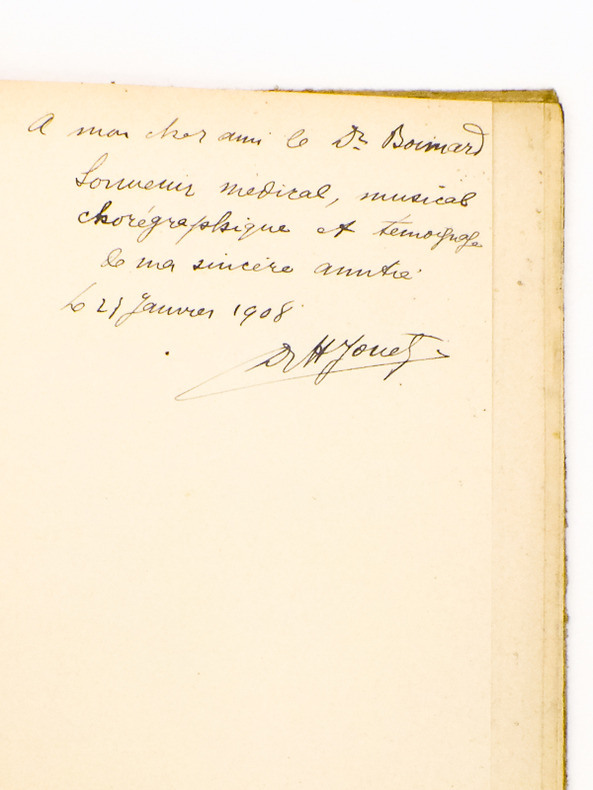 A mon cher ami le Dr Boimard
Souvenir médical, musical
chorégraphique et témoignage
de ma sincère amitié
Le 21 Janvier 1908
Dr H Jouet